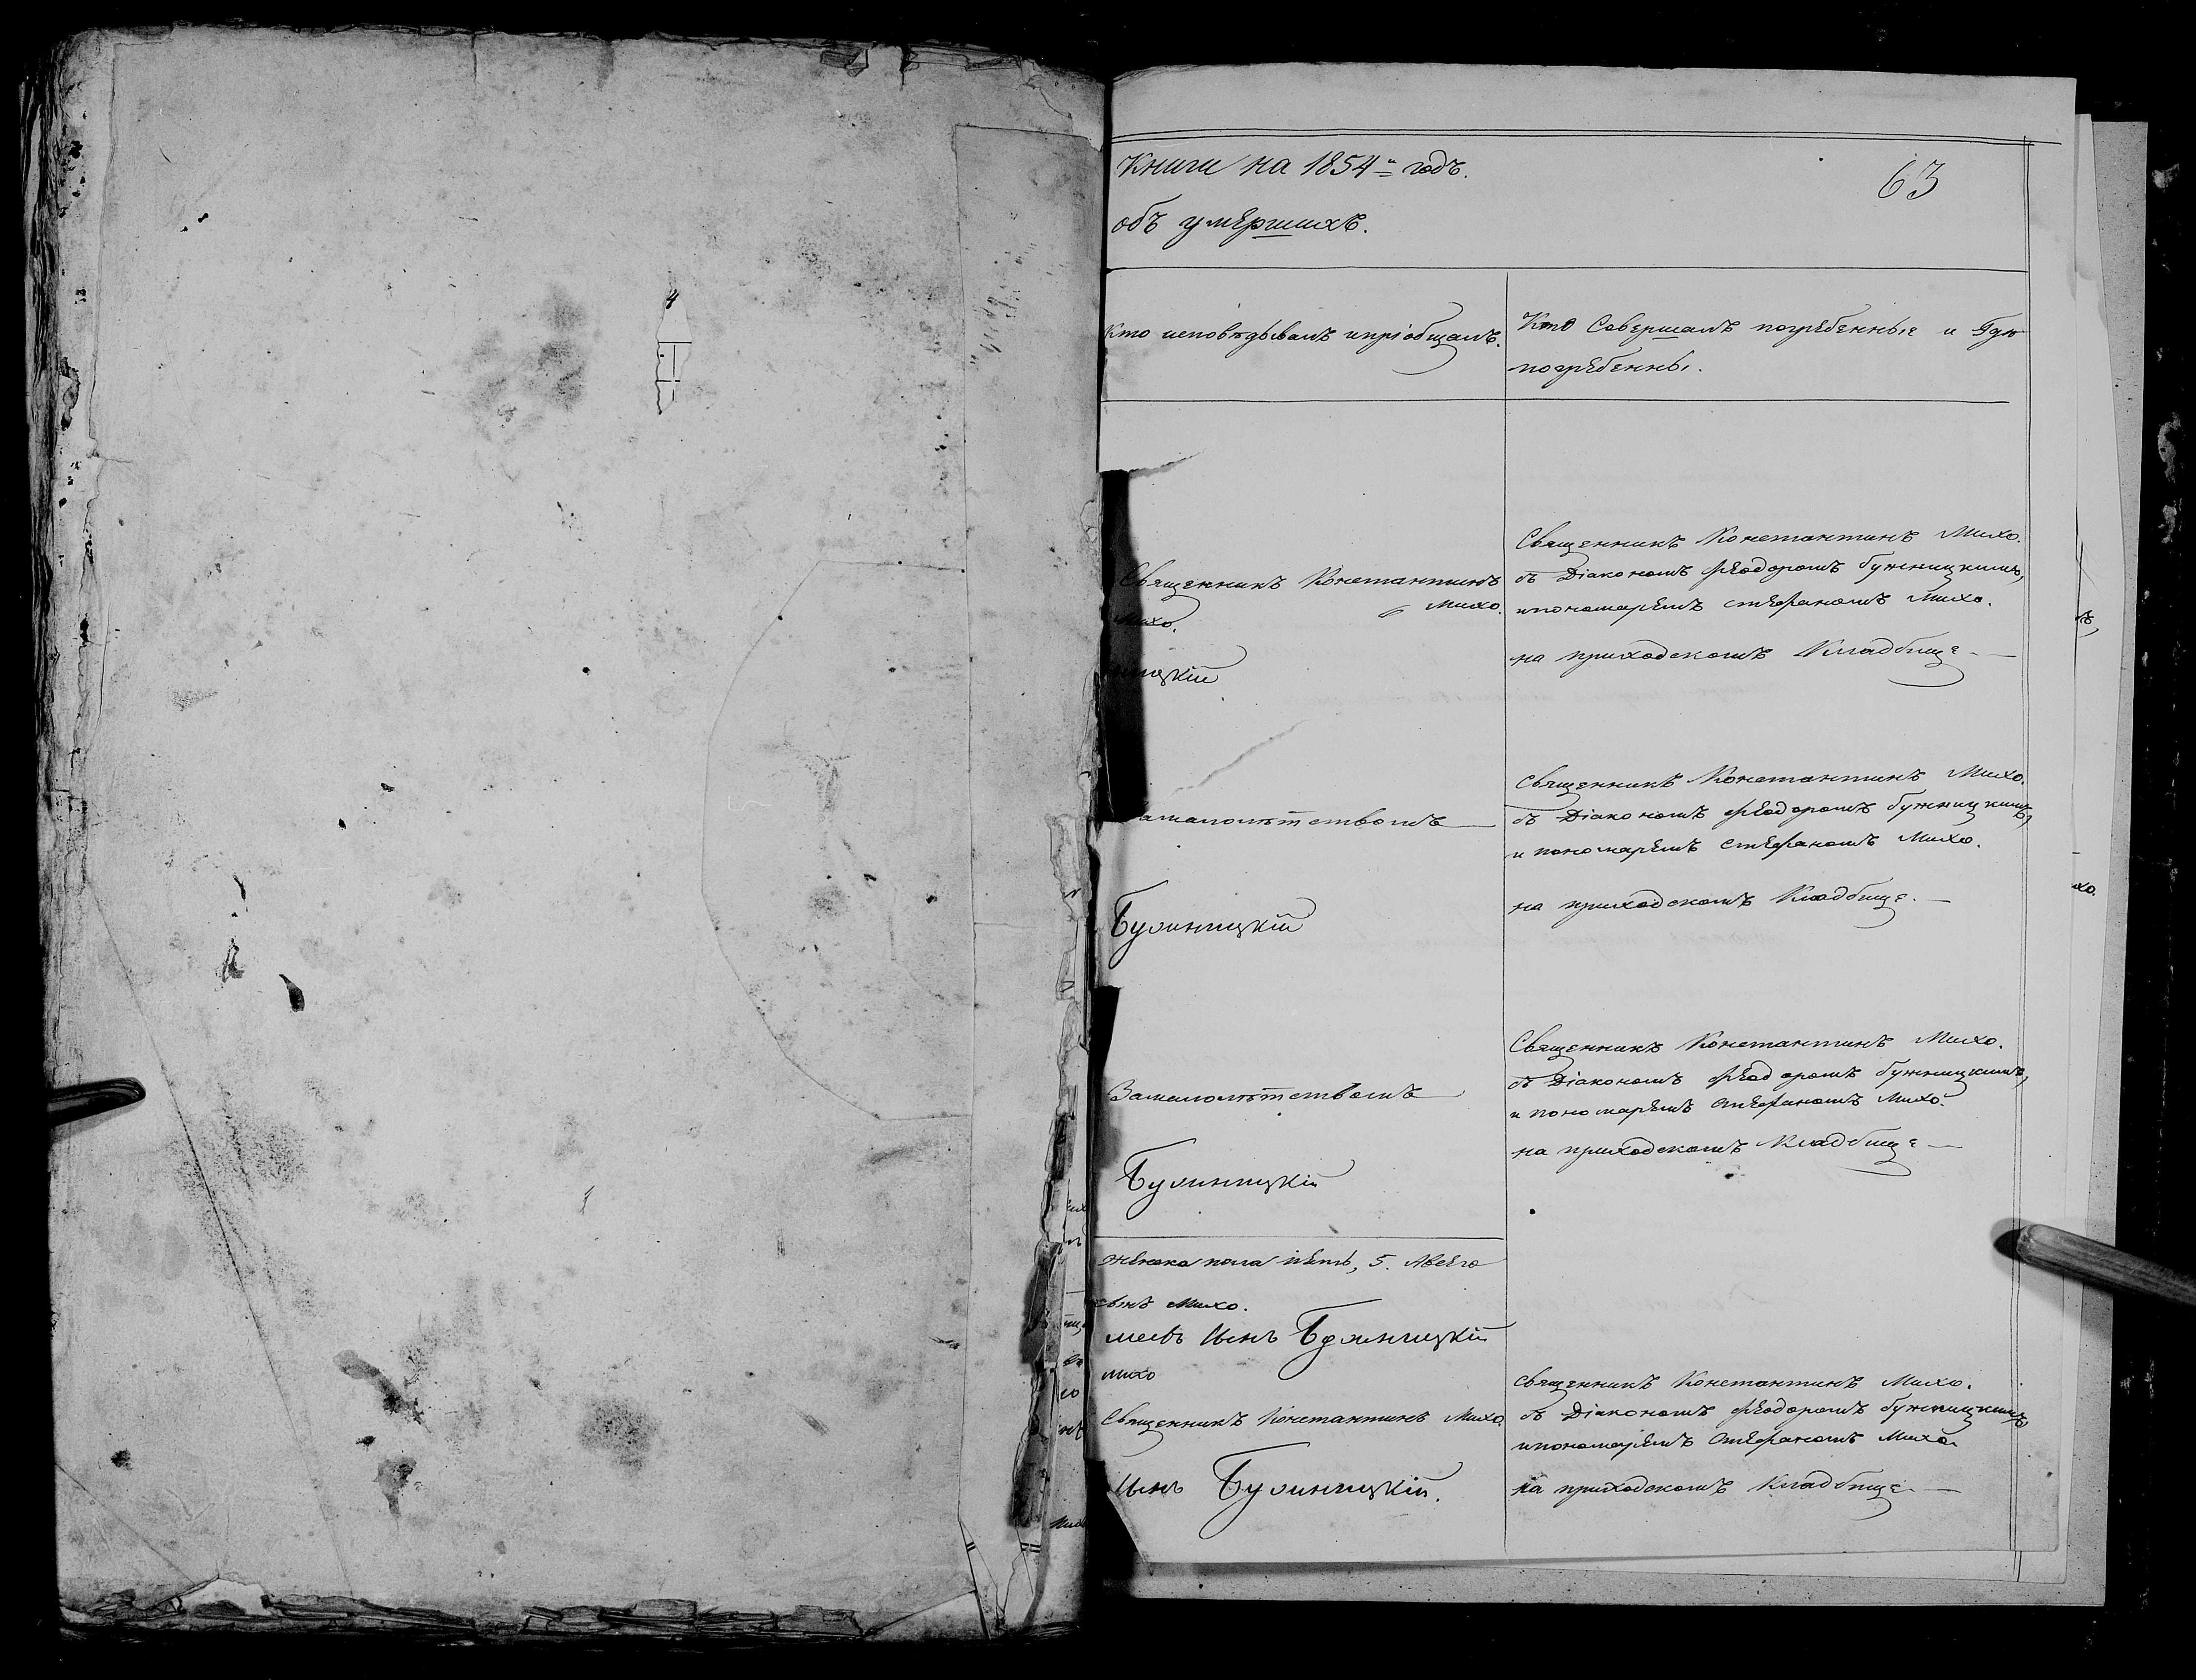 Книги на 1854й годъ.
63
объ умершихъ.
Кто исповѣдывалъ и пріобщалъ.
Кто Совершалъ погребенные и Гдѣ
погребенны.
Священникъ Константинъ
Михо.
Михо.
ницкій
Священникъ Константинъ Михо.
съ Діакономъ Ѳеодоромъ бужницкимъ,
и пономаремъ стефаномъ Михо.
на приходскомъ Кладбище
Замалолѣтствомъ
Священникъ Константинъ Михо.
съ Діакономъ Ѳеодоромъ бужницкимъ,
и пономаремъ стефаномъ Михо.
на приходскомъ Кладбище.
Замалолѣтствомъ
Священникъ Константинъ Михо.
съ Діакономъ Ѳеодоромъ бужницкимъ,
и пономаремъ Стефаномъ Михо.
на приходскомъ Кладбище
женска пола пять, 5. Авсего
сынъ Михо.
михо
Священникъ Константинъ Михо.
Священникъ Константинъ Михо.
съ Діакономъ Ѳеодоромъ бужницкимъ
и пономаремъ Стефаномъ Михо.
на приходскомъ Кладбище